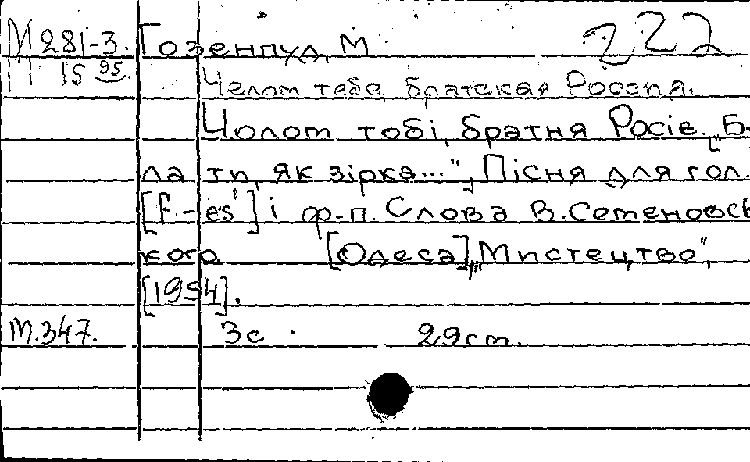 М 281-3. Гозенпуд, М 222
М 1595
Челом тебе, братская Россия.
Чолом тобі, братня Росіє. „Б-
ла ти, як зірка...", Пісня для гол.
[f.-es'] і ф-п. Слова В. Семеновсь
кого [Одеса], „Мистецтво",
[1954].
М.347. 3с. 29ст.